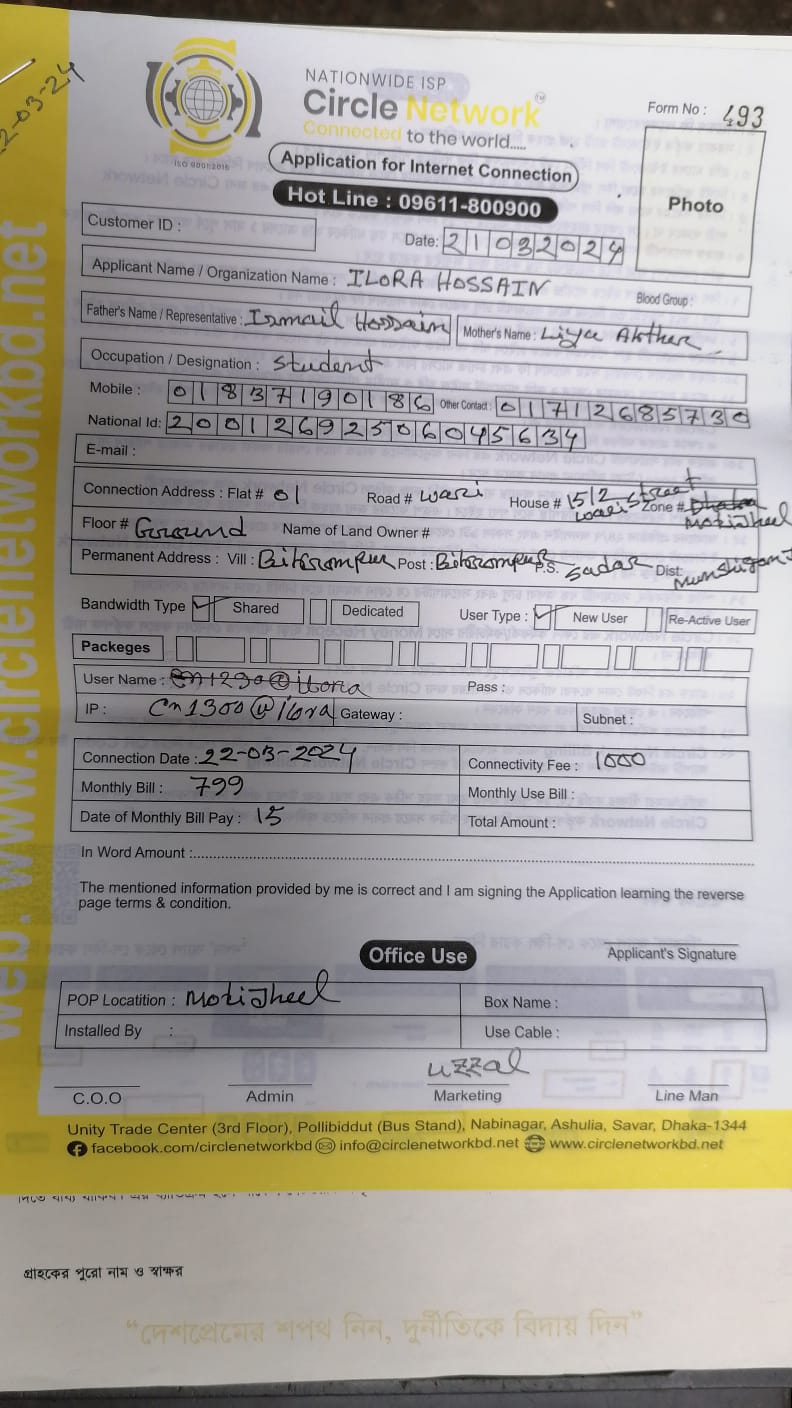 22-03-24
NATIONWIDE ISP
Circle Network™
Connected to the world.....
ISO 9001:2015
Form No : 493
Application for Internet Connection
Hot Line : 09611-800900
Photo
Customer ID :
Date: 21032024
Applicant Name / Organization Name : ILORA HOSSAIN Blood Group :
Father's Name / Representative : Ismail Hossain Mother's Name : Liya Akther
Occupation / Designation : Student
Mobile : 01837190186 Other Contact : 01712685730
National Id: 20012692506045634
E-mail :
Connection Address : Flat # 01 Road # wari House # 15/2 wari street Zone # Motijheel
Floor # Ground Name of Land Owner #
Permanent Address : Vill : Bikrompur Post : Bikrompur P.S. Sadar Dist: Munshiganj
Bandwidth Type Shared Dedicated User Type : New User Re-Active User
Packeges
User Name : Pass :
IP : Cn1300@ilora Gateway : Subnet :
Connection Date : 22-03-2024 Connectivity Fee : 1000
Monthly Bill : 799 Monthly Use Bill :
Date of Monthly Bill Pay : 15 Total Amount :
In Word Amount :
The mentioned information provided by me is correct and I am signing the Application learning the reverse
page terms & condition.
Office Use
Applicant's Signature
POP Locatition : Motijheel Box Name :
Installed By : Use Cable :
uzzal
C.O.O Admin Marketing Line Man
Unity Trade Center (3rd Floor), Pollibiddut (Bus Stand), Nabinagar, Ashulia, Savar, Dhaka-1344
facebook.com/circlenetworkbd info@circlenetworkbd.net www.circlenetworkbd.net
web: www.circlenetworkbd.net
গ্রাহকের পুরো নাম ও স্বাক্ষর
“দেশপ্রেমের শপথ নিন, দুর্নীতিকে বিদায় দিন”